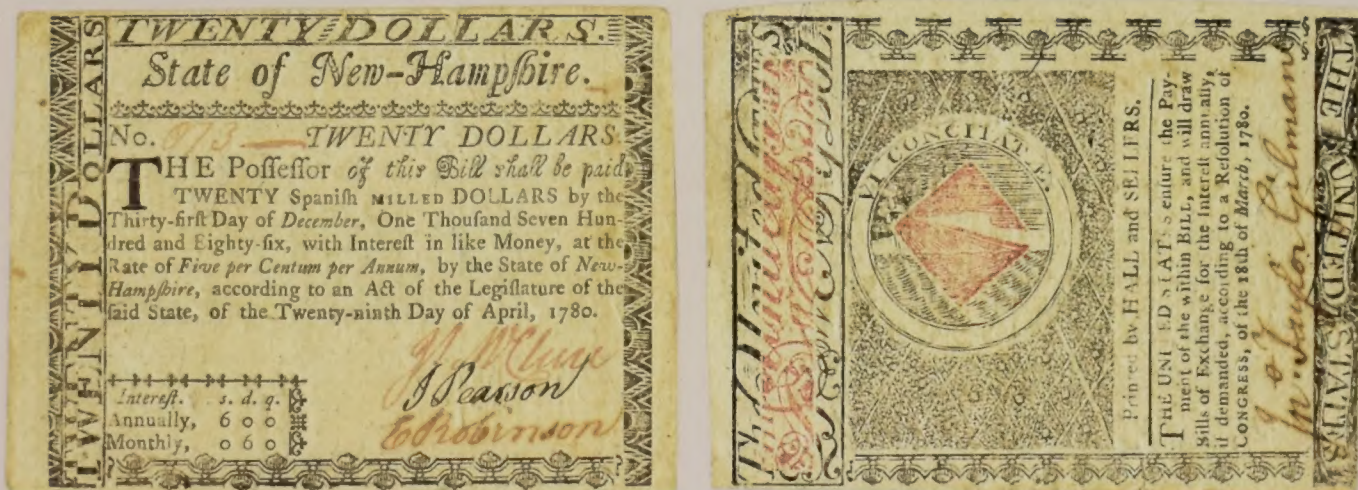 TWENTY DOLLARS.
State of New-Hampſhire.
No. 973 TWENTY DOLLARS.
THE Poſſeſſor of this Bill shall be paid
TWENTY Spaniſh MILLED DOLLARS by the
Thirty-firſt Day of December, One Thouſand Seven Hun-
dred and Eighty-ſix, with Intereſt in like Money, at the
Rate of Five per Centum per Annum, by the State of New-
Hampſhire, according to an Act of the Legiſlature of the
ſaid State, of the Twenty-ninth Day of April, 1780.
J. McClure
J Pearson
E Robinson
Intereſt. s. d. q.
Annually, 6 0 0
Monthly, 0 6 0
TWENTY DOLLARS
TWENTY DOLLARS
VI CONCITATÆ.
Printed by HALL and SELLERS.
THE UNITED STATES enſure the Pay-
ment of the within BILL, and will draw
Bills of Exchange for the Intereſt annually,
if demanded, according to a Reſolution of
CONGRESS, of the 18th of March, 1780.
Jno Taylor Gilman
THE UNITED STATES